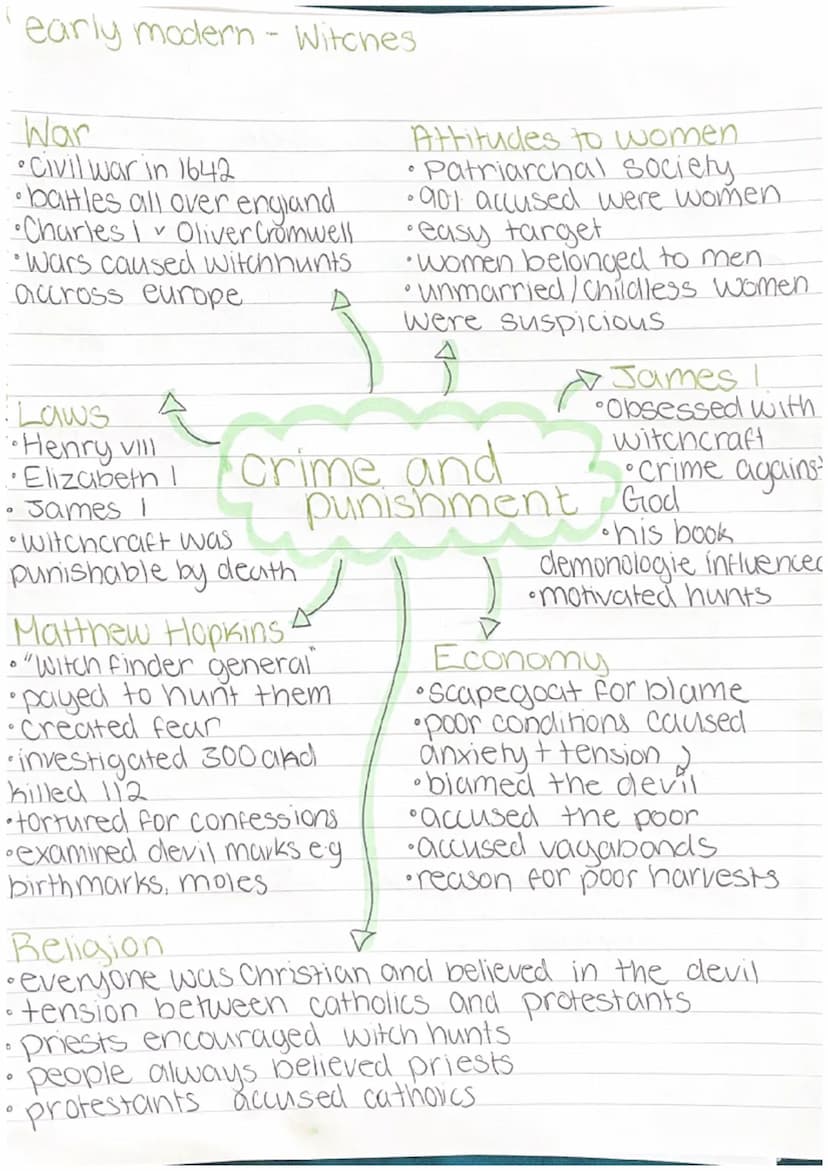 early modern - Witches
War
•Civil war in 1642
•battles all over england
•Charles 1 v Oliver Cromwell
•Wars caused witchhunts
accross europe
Attitudes to women
•Patriarchal society
•90% accused were women
•easy target
•women belonged to men
•unmarried/childless women
were suspicious
Laws
•Henry VIII
•Elizabeth 1
•James 1
•witchcraft was
punishable by death
crime and
punishment
James 1
•Obsessed with
witchcraft
•crime against
God
•his book
demonologie influenced
•motivated hunts
Matthew Hopkins
•"witch finder general"
•payed to hunt them
•created fear
•investigated 300 and
killed 112
•tortured for confessions
•examined devil marks e.g
birthmarks, moles
Economy
•scapegoat for blame
•poor conditions caused
anxiety + tension
•blamed the devil
•accused the poor
•accused vagabonds
•reason for poor harvests
Religion
•everyone was Christian and believed in the devil
•tension between catholics and protestants
•priests encouraged witch hunts
•people always believed priests
•protestants accused catholics